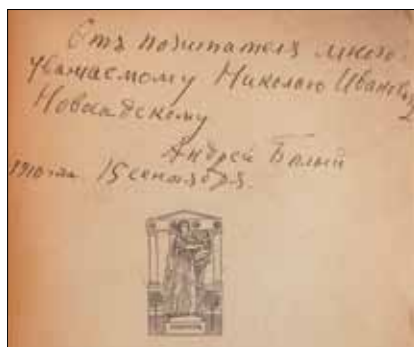 Отъ почитателя много-
уважаемому Николаю Ивановичу
Новосадскому
Андрей Бѣлый
1910 года 15 сентября.